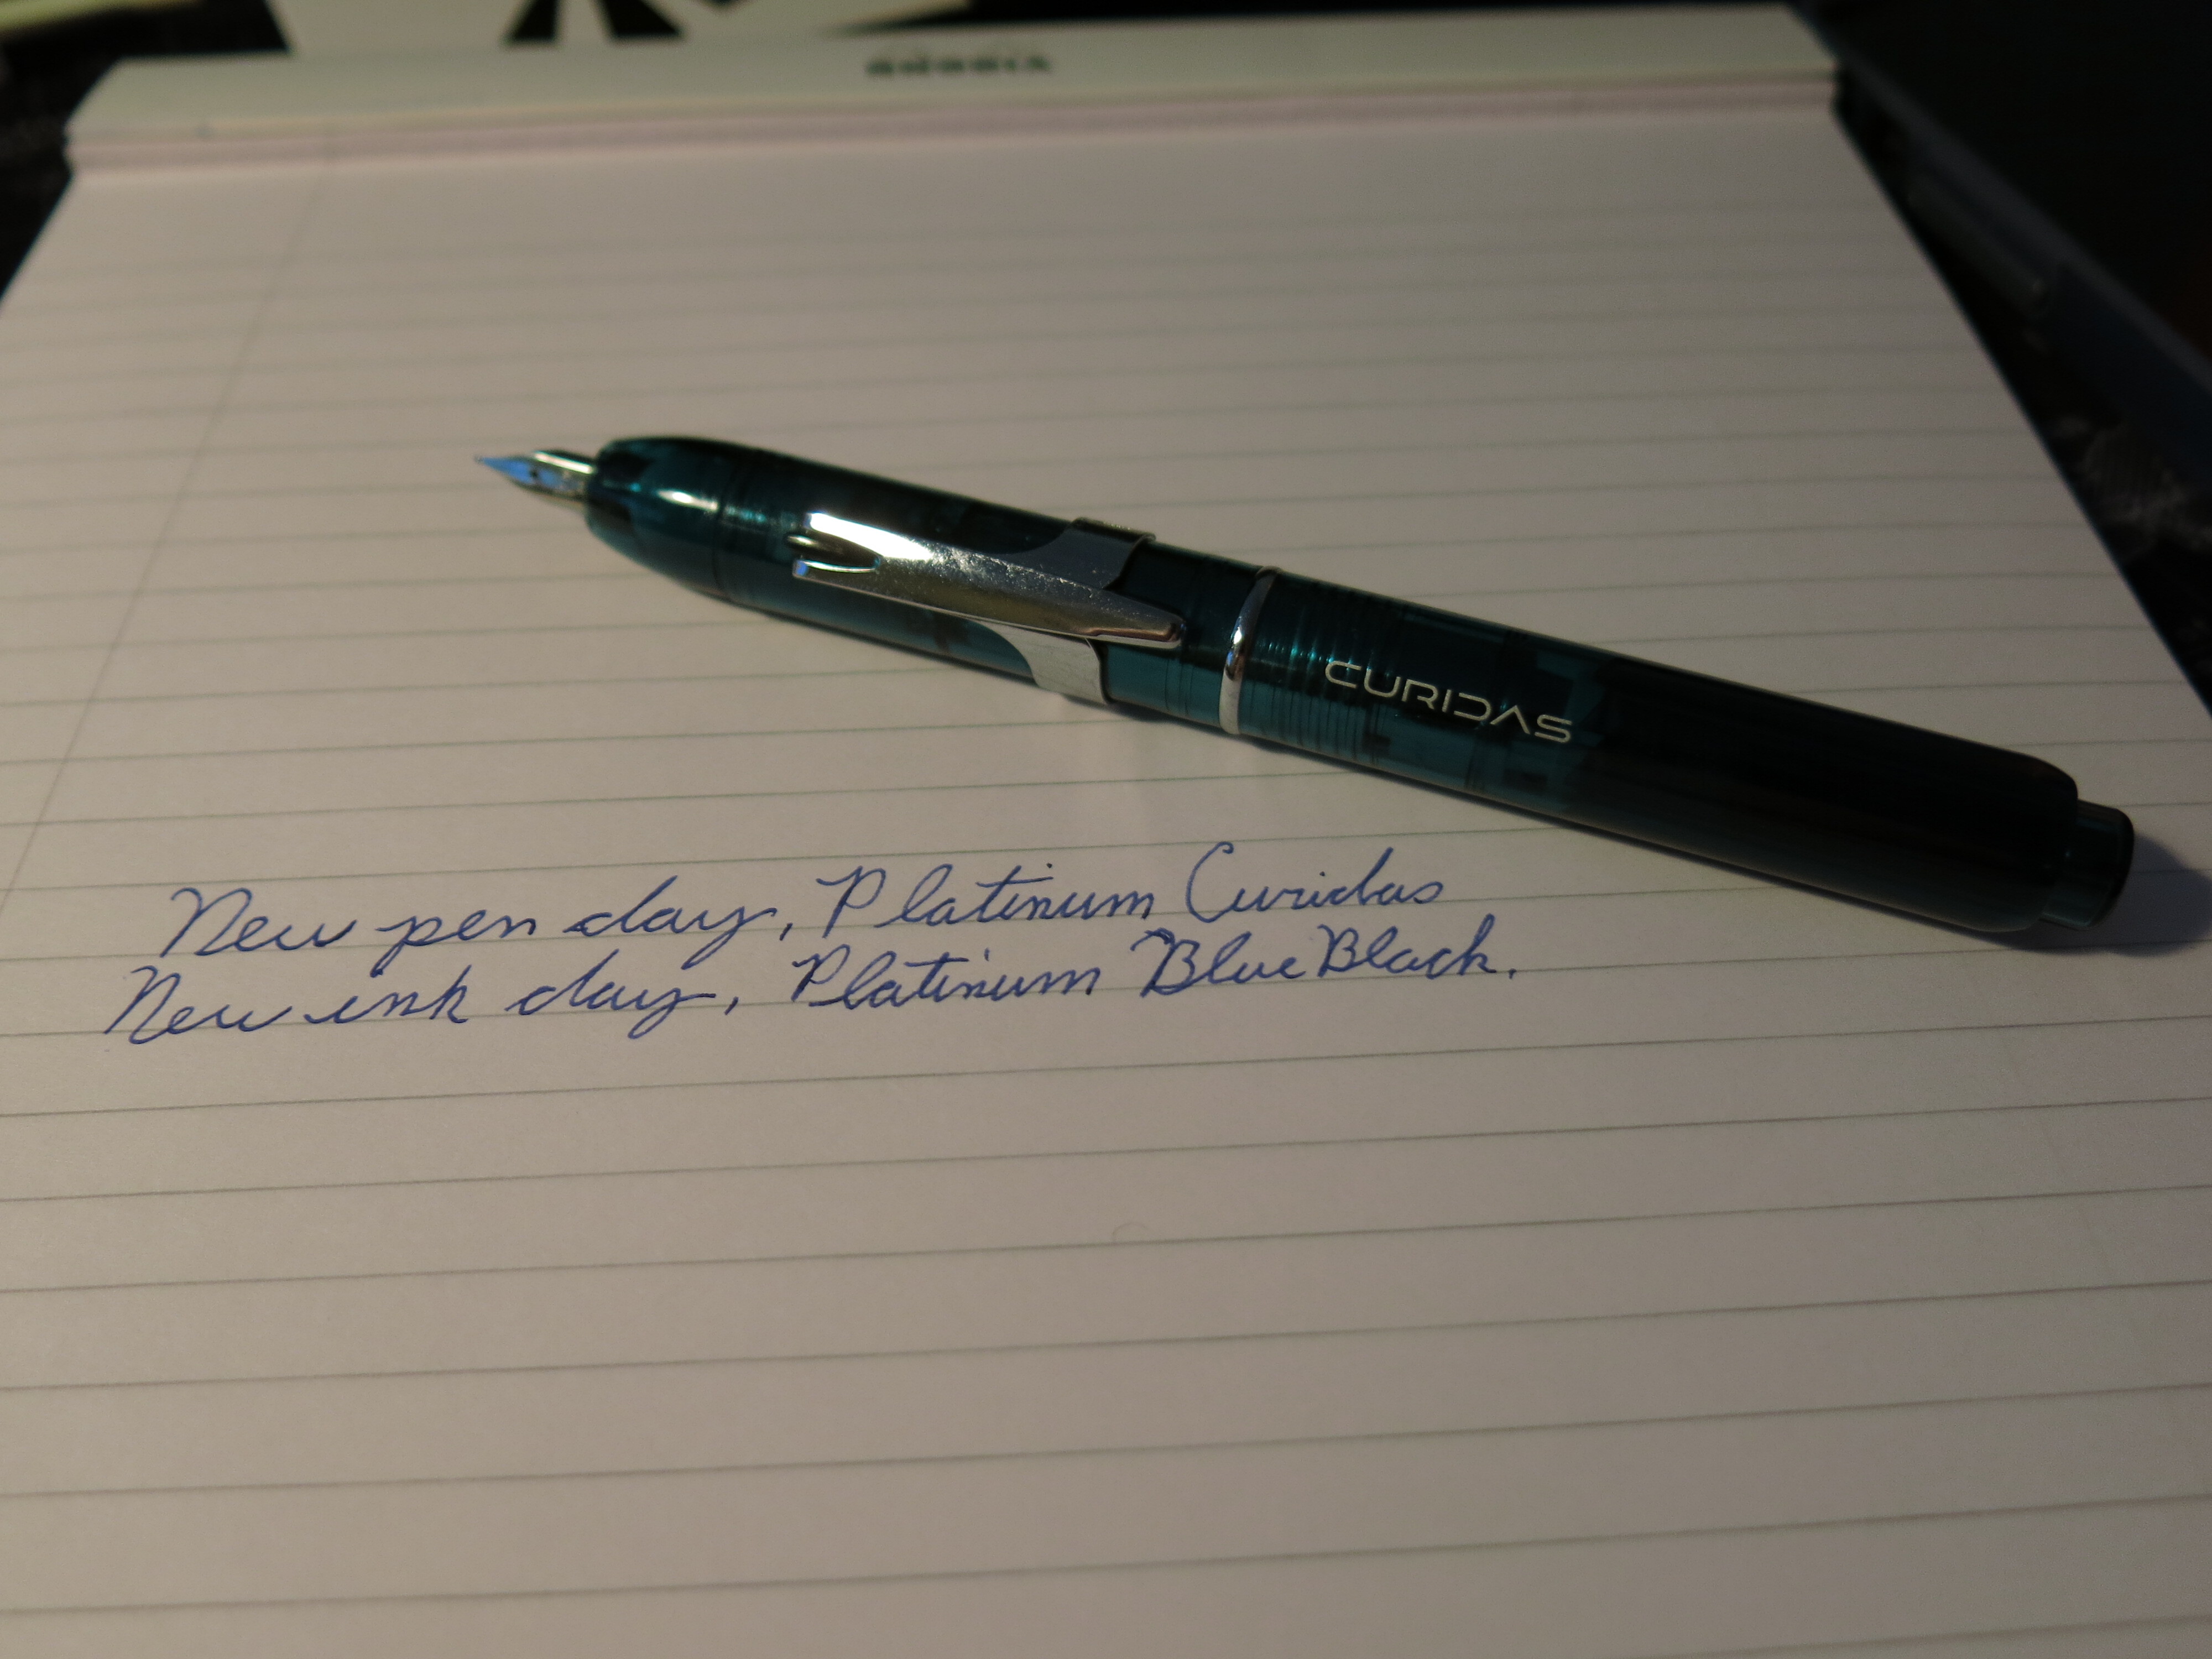 CURIDAS
New pen day, Platinum Curidas
New ink day, Platinum Blue Black.